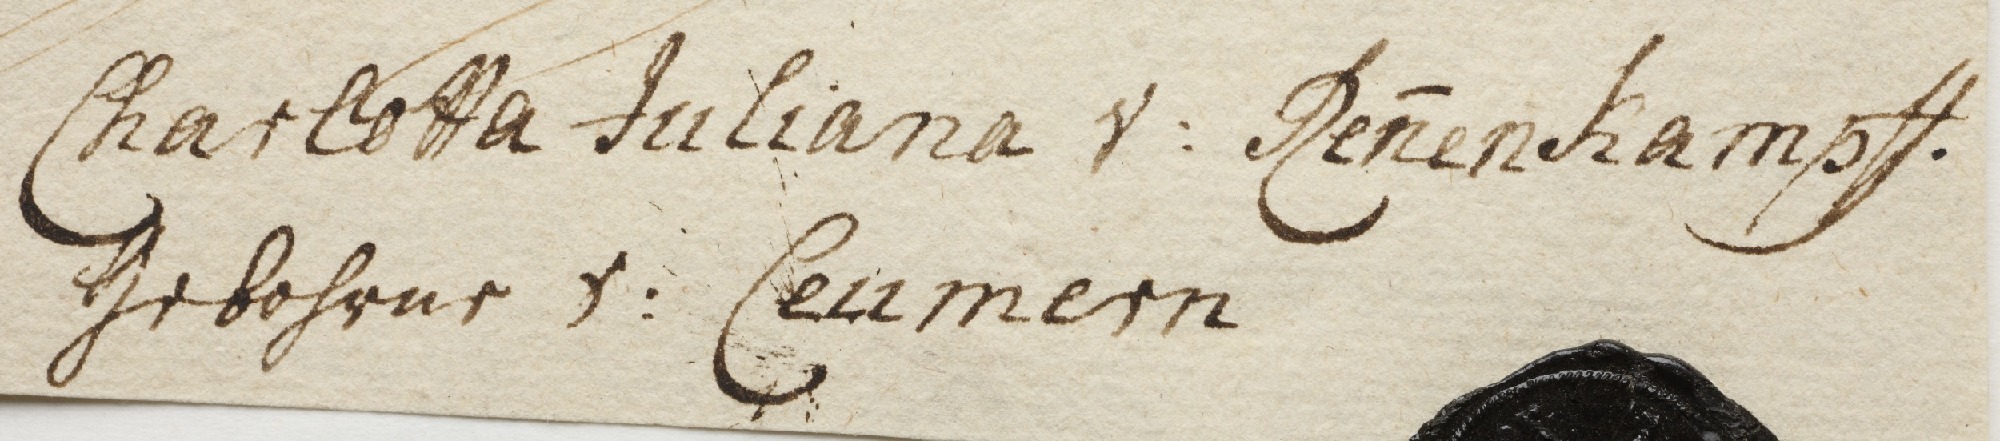 Charlotta Juliana v: Reñenkampff.
Gebohrne v: Ceumern